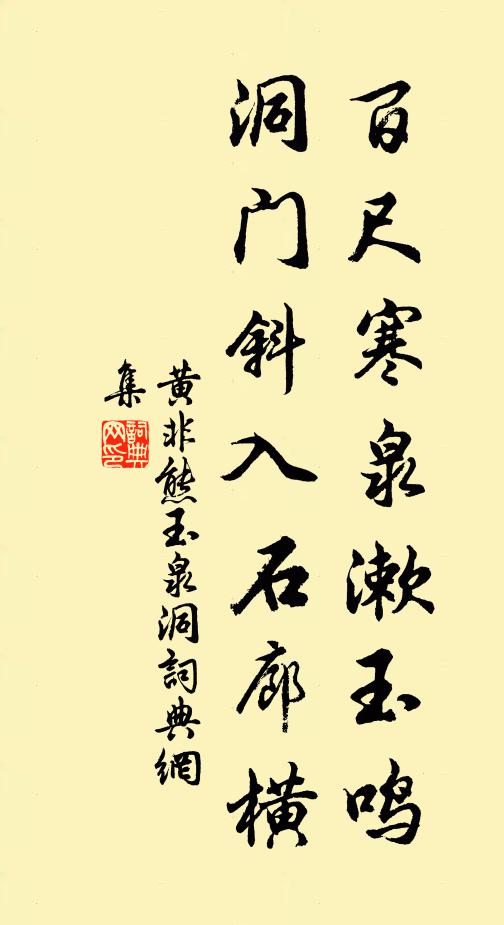 百尺寒泉漱玉鸣
洞门斜入石廊横
黄非熊玉泉洞詞典網
集
詞典网印